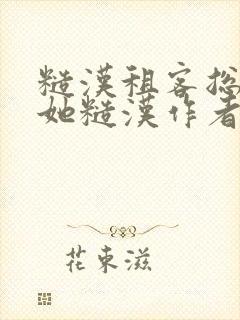 糙漢租客總
她糙漢作者
花束滋